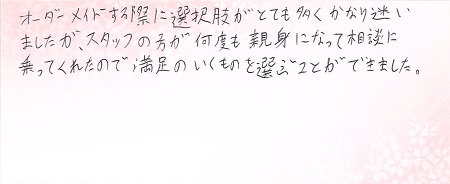 オーダーメイドする際に選択肢がとても多くかなり迷い
ましたが、スタッフの方が何度も親身になって相談に
乗ってくれたので満足のいくものを選ぶことができました。